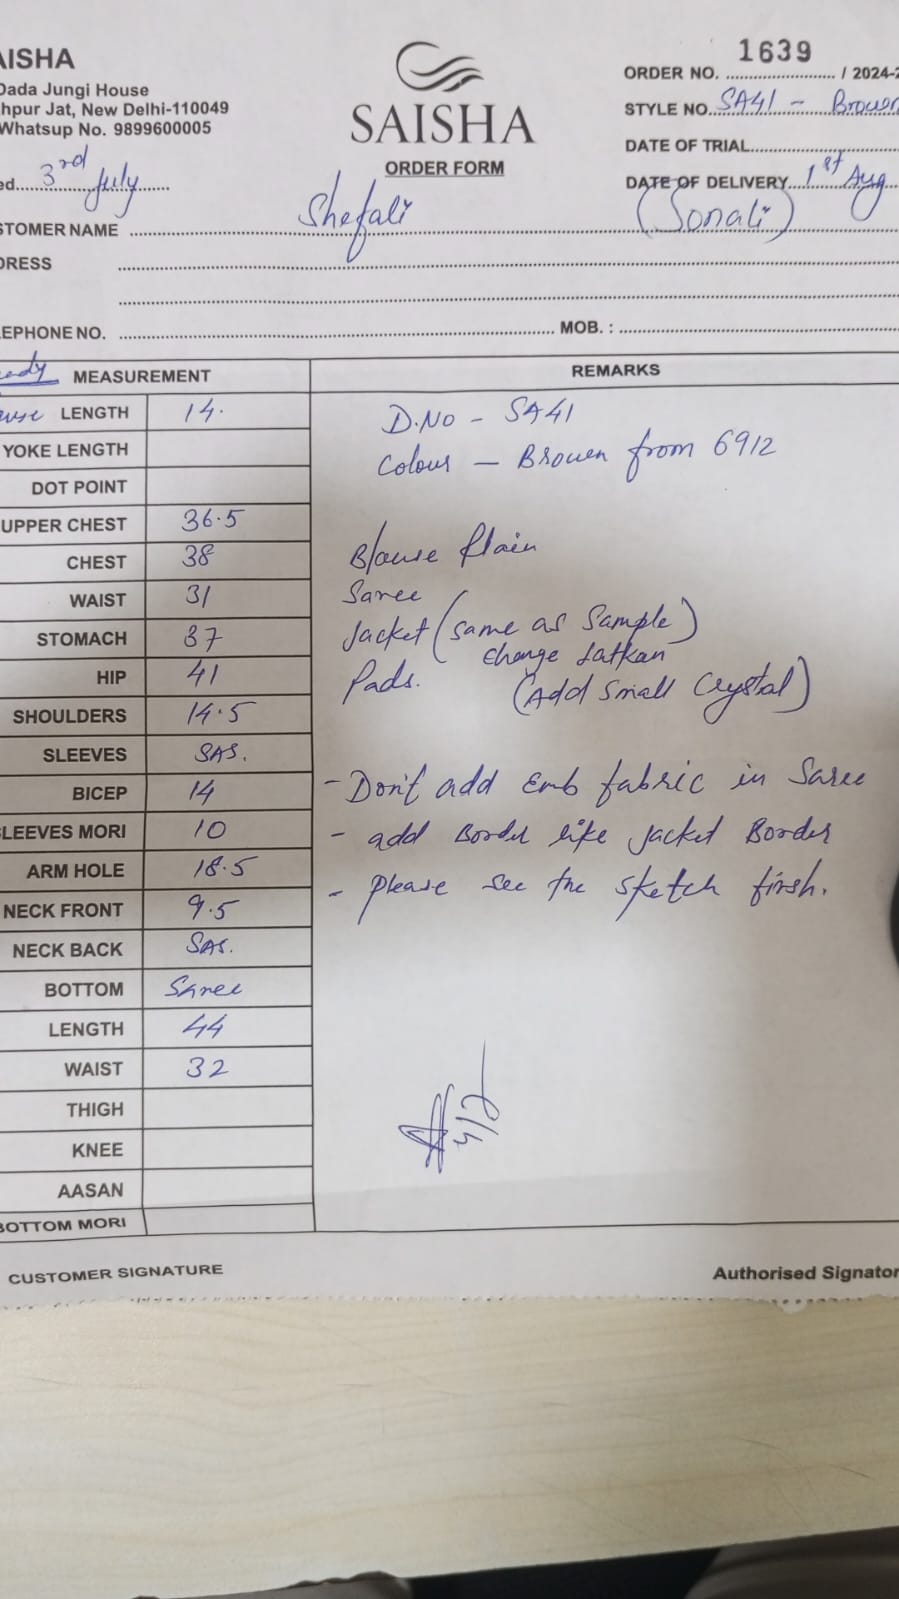 AISHA
Dada Jungi House
hpur Jat, New Delhi-110049
Whatsup No. 9899600005
ed. 3rd July
SAISHA
ORDER FORM
1639
ORDER NO. / 2024-2
STYLE NO. SA41 - Brown
DATE OF TRIAL
DATE OF DELIVERY 1st Aug
STOMER NAME Shefali (Sonali)
DRESS
EPHONE NO. MOB. :
MEASUREMENT REMARKS
LENGTH 14.
YOKE LENGTH
DOT POINT
UPPER CHEST 36.5
CHEST 38
WAIST 31
STOMACH 37
HIP 41
SHOULDERS 14.5
SLEEVES SAS.
BICEP 14
LEEVES MORI 10
ARM HOLE 18.5
NECK FRONT 9.5
NECK BACK SAS.
BOTTOM Saree
LENGTH 44
WAIST 32
THIGH
KNEE
AASAN
BOTTOM MORI
D.No - SA41
Colour - Brown from 6912
Blouse Plain
Saree
Jacket (same as Sample)
change Latkan
Pads. (Add Small Crystal)
- Don't add Emb fabric in Saree
- add Border like Jacket Border
- Please see the sketch firsh.
CUSTOMER SIGNATURE
Authorised Signator